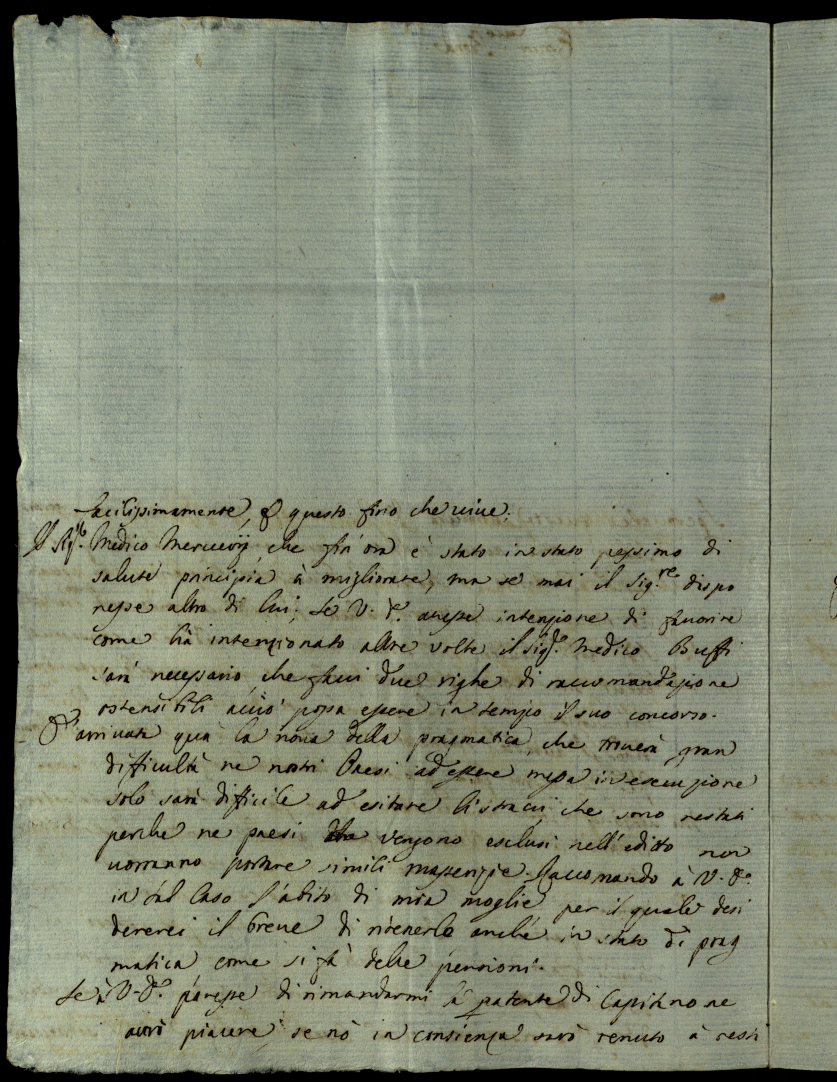 facilissimamente, e questo fino che vive.
Il Sigre. Medico Mercurij, che fin'ora è stato in stato pessimo di
salute principia à migliorare, ma se mai il Sig.re dispo
nesse altro di lui, se V. S. avesse intenzione di favorire
come hà intenzionato altre volte il Sigre. Medico Buffi
sarà necessario, che facci due righe di raccomandazione
ostensibili acciò possa essere in tempo il suo concorso.
E' arrivata quà la nova della pragmatica, che troverà gran
difficultà ne nostri Paesi ad essere messa in esecuzione
solo sarà difficile ad esitare li stracci che sono restati
perche ne paesi vengono esclusi nell'editto non
vorranno portare simili massenzie. Raccomando à V. S.
in tal Caso l'abito di mia moglie per il quale desi
dererei il breve di ritenerlo anche in stato di prag
matica come si fà delle pensioni.
Se à V. S. paresse di rimandarmi la patente di Capitano ne
avrò piacere, se nò in consienza sarò tenuto à resti